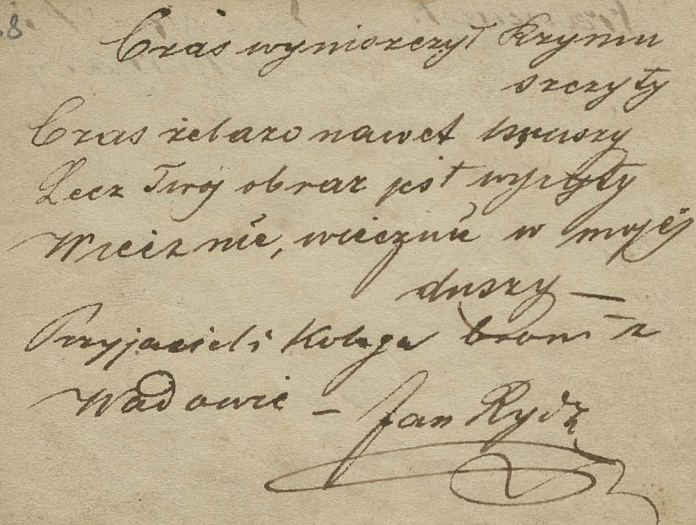 8
Czas wyniszczył Krymu
szczyty
Czas żelazo nawet kruszy
Lecz Twój obraz jest wyryty
Wiecznie, wiecznie w mojej
duszy —
Przyjaciel i Kolega broni z
Wadowic – Jan Rydz